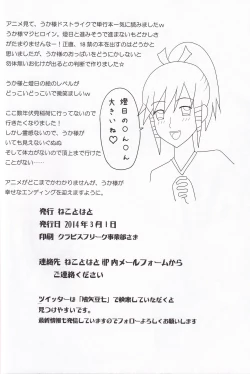 アニメ見て、うか様ドストライクで単行本一気に組みましたw
うか様マジヒロイン。燈日と進みそうで進まないもどかしさ
がたまりませんなー!正直、18禁の本を出すのはどうかと
思いましたが、うか様のおっぱいをどうにかしないと
勿体無いお化けが出るとの判断で作りました☆
うか様と燈日の絵のレベルが
どっこいどっこいで微笑ましいw
ここ数年伏見稲荷に行ってないので
行きたくなりました!
しかし霊感ないので、うか様が
いても見えないくなぬ
そして体力がないので頂上まで行けた
ことがない……
アニメがどこまでかわかりませんが、うか様が
幸せなエンディングを迎えますように。
燈日のん〇ん〇
大きいね♡
発行 ねことはと
発行日 2014年3月1日
印刷 クラビスブリーク事業部さま
連絡先 ねことはとHP内メールフォームから
ご連絡ください
ツイッターは「鳩矢豆七」で検索していただくと
見つけやすいです。
最新情報も発信していますのでフォローよろしくお願いします